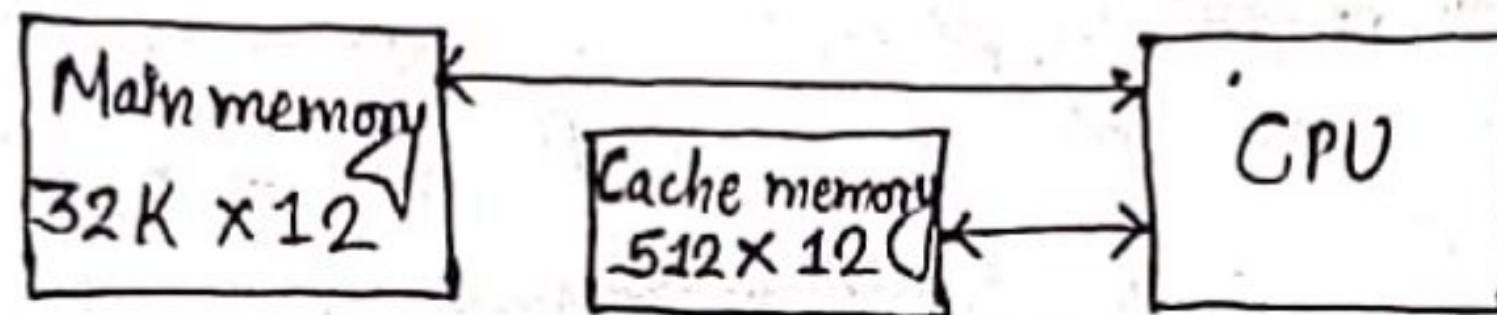 Main memory
32K X 12
Cache memory
512 X 12
CPU